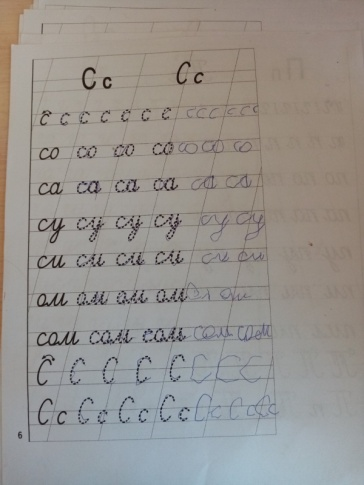 Сс Сс
с с с с с с с с с с с с
со со со со со со со
са са са са са са
су су су су су су
си си си си си си
ом ом ом ом ом
сом сом сом сом сом
С С С С С С С С
Сс Сс Сс Сс Сс Сс Сс
6